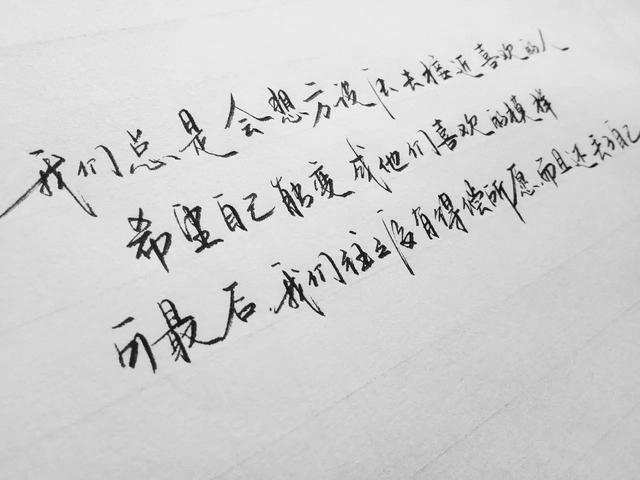 我们总是会想方设法去接近喜欢的人
希望自己能变成他们喜欢的模样
可最后,我们往往没有得偿所愿而且还丢了自己